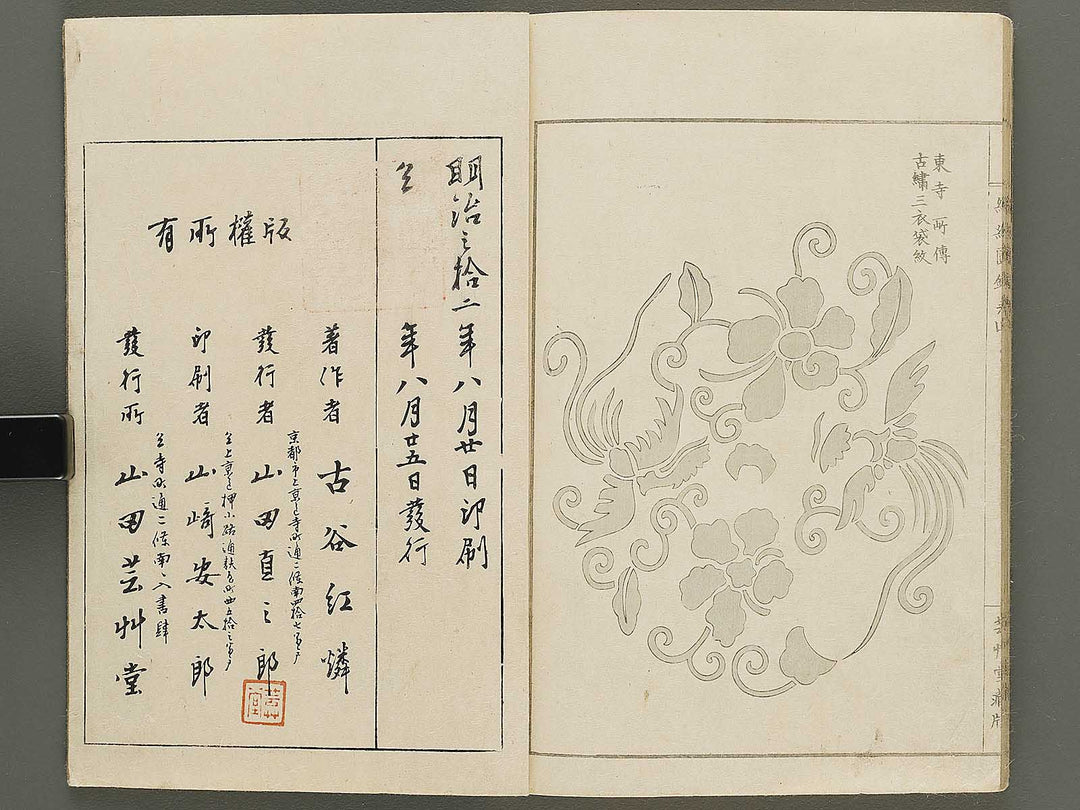 東寺所傳
古繡三衣袋紋
芸艸堂
明治三拾二年八月廿日印刷
仝年八月廿五日發行
版權所有
著作者 古谷紅燐
京都市上京区寺町通二條南四拾七番戸
發行者 山田直三郎
仝上京区押小路通
印刷者 山崎安太郎
仝寺町通二條南入書肆
發行所 山田芸艸堂
芸艸堂